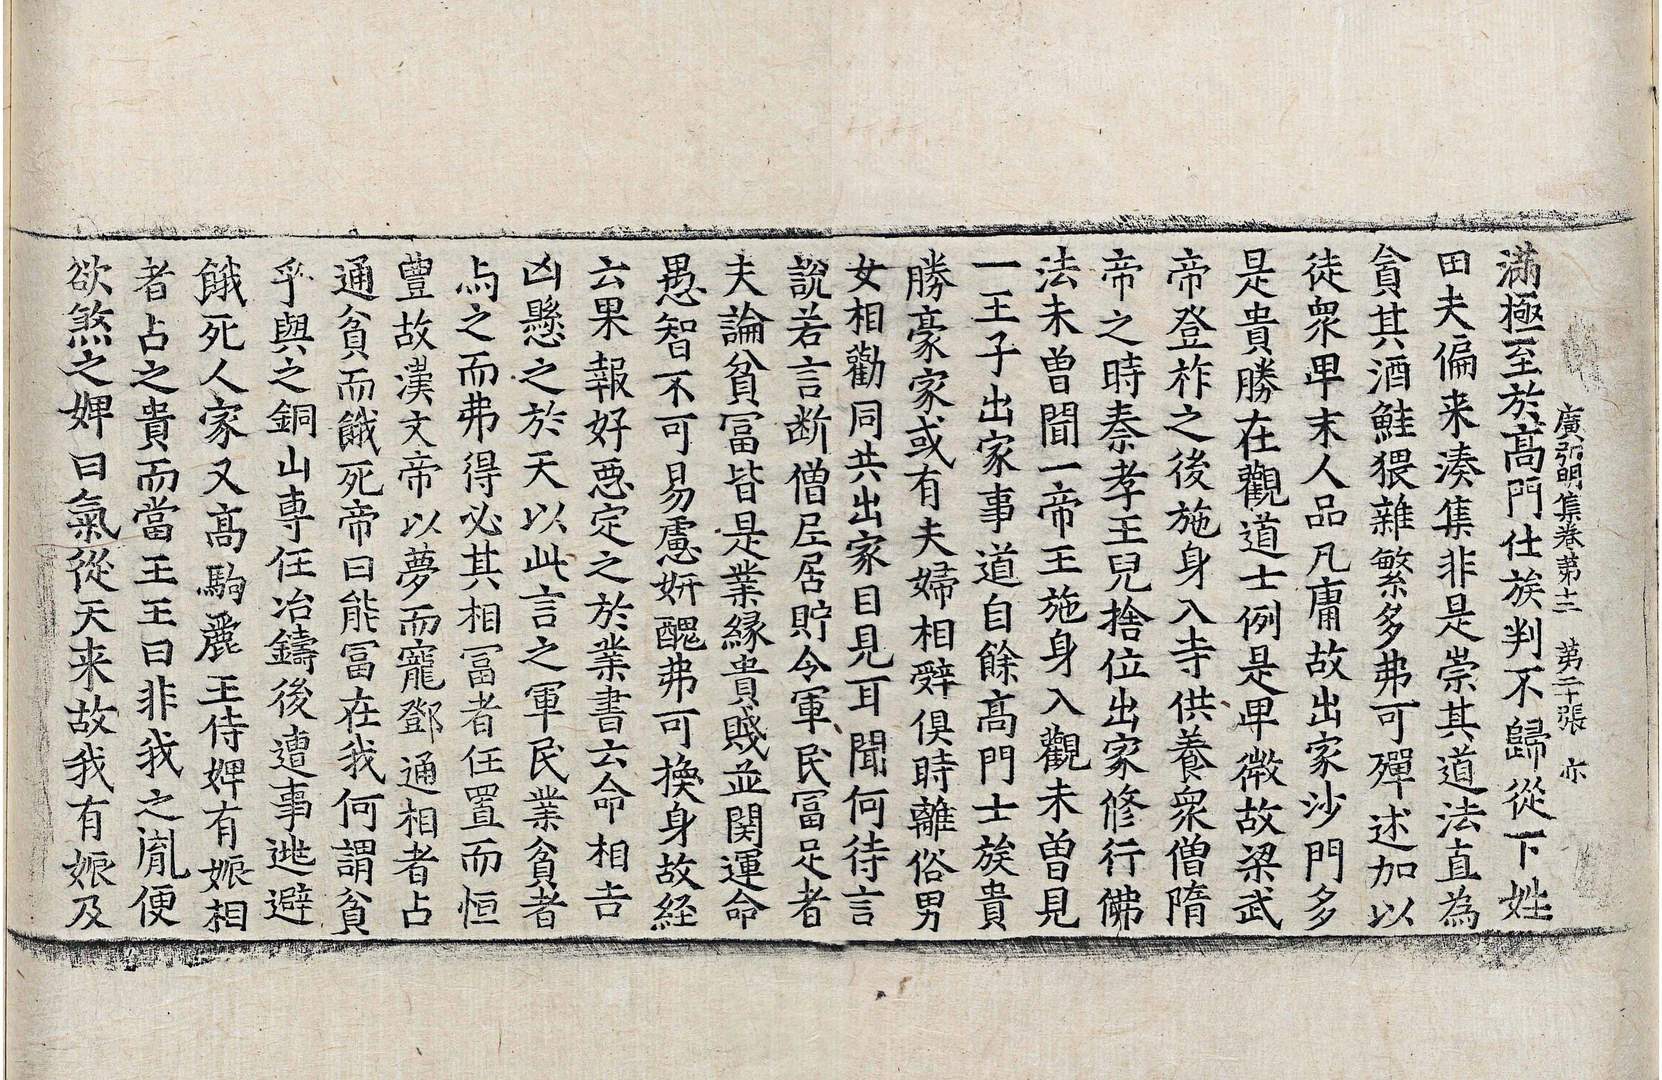 廣弘明集卷第十二　第二十張　亦
滿極至於髙門仕族判不歸從下姓
田夫偏来湊集非是崇其道法直為
貪其酒鮭猥雜繁多弗可殫述加以
徒衆卑末人品凡庸故出家沙門多
是貴勝在觀道士例是卑微故梁武
帝登祚之後施身入寺供養衆僧隋
帝之時秦孝王兒捨位出家修行佛
法未曾聞一帝王施身入觀未曾見
一王子出家事道自餘髙門士族貴
勝豪家或有夫婦相辤俱時離俗男
女相勸同共出家目見耳聞何待言
說若言断僧㞐居貯令軍民冨足者
夫論貧冨皆是業緣貴賤並関運命
愚智不可易慮妍醜弗可換身故経
云果報好惡定之於業書云命相吉
凶懸之於天以此言之軍民業貧者
与之而弗得必其相冨者任置而恒
豐故漢文帝以夢而寵鄧通相者占
通貧而餓死帝曰能冨在我何謂貧
乎與之銅山專任冶鑄後遭事逃避
餓死人家又髙駒麗王侍婢有娠相
者占之貴而當王王曰非我之胤便
欲煞之婢曰氣從天来故我有娠及